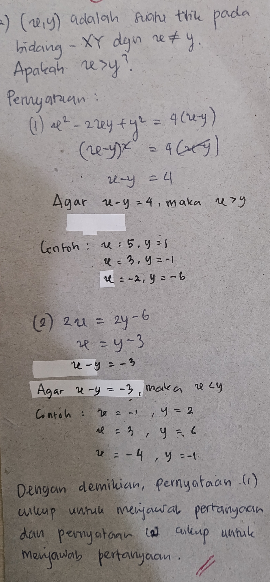 (x,y) adalah suatu titik pada
bidang - XY dgn x ≠ y.
Apakah x>y?
Pernyataan :
(1) x² - 2xy + y² = 4(x-y)
(x-y)² = 4(x-y)
x-y = 4
Agar x-y = 4, maka x > y
Contoh : x = 5, y = 1
x = 3, y = -1
x = -2, y = -6
(2) 2x = 2y-6
x = y-3
x-y = -3
Agar x-y = -3, maka x < y
Contoh : x = -1, y = 2
x = 3, y = 6
x = -4, y = -1
Dengan demikian, pernyataan (1)
cukup untuk menjawab pertanyaan
dan pernyataan (2) cukup untuk
menjawab pertanyaan.